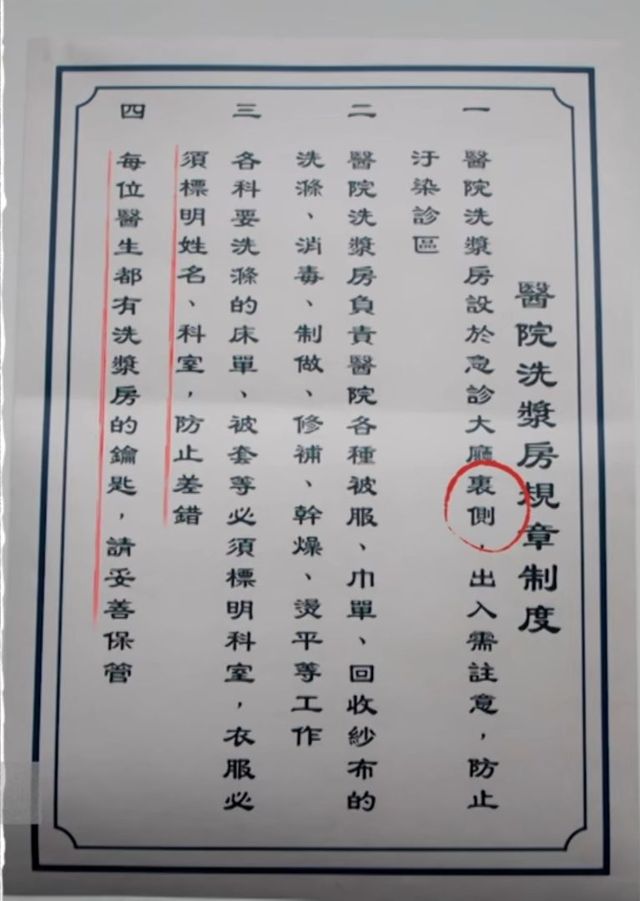 醫院洗漿房規章制度
一 醫院洗漿房設於急診大廳裏側，出入需註意，防止
汙染診區
二 醫院洗漿房負責醫院各種被服、巾單、回收紗布的
洗滌、消毒、制做、修補、幹燥、燙平等工作
三 各科要洗滌的床單、被套等必須標明科室，衣服必
須標明姓名、科室，防止差錯
四 每位醫生都有洗漿房的鑰匙，請妥善保管